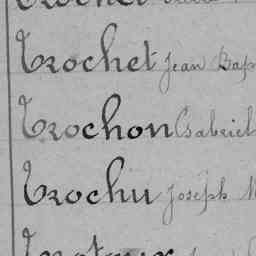 Trochet Jean Bap
Trochon Gabriel
Trochu Joseph